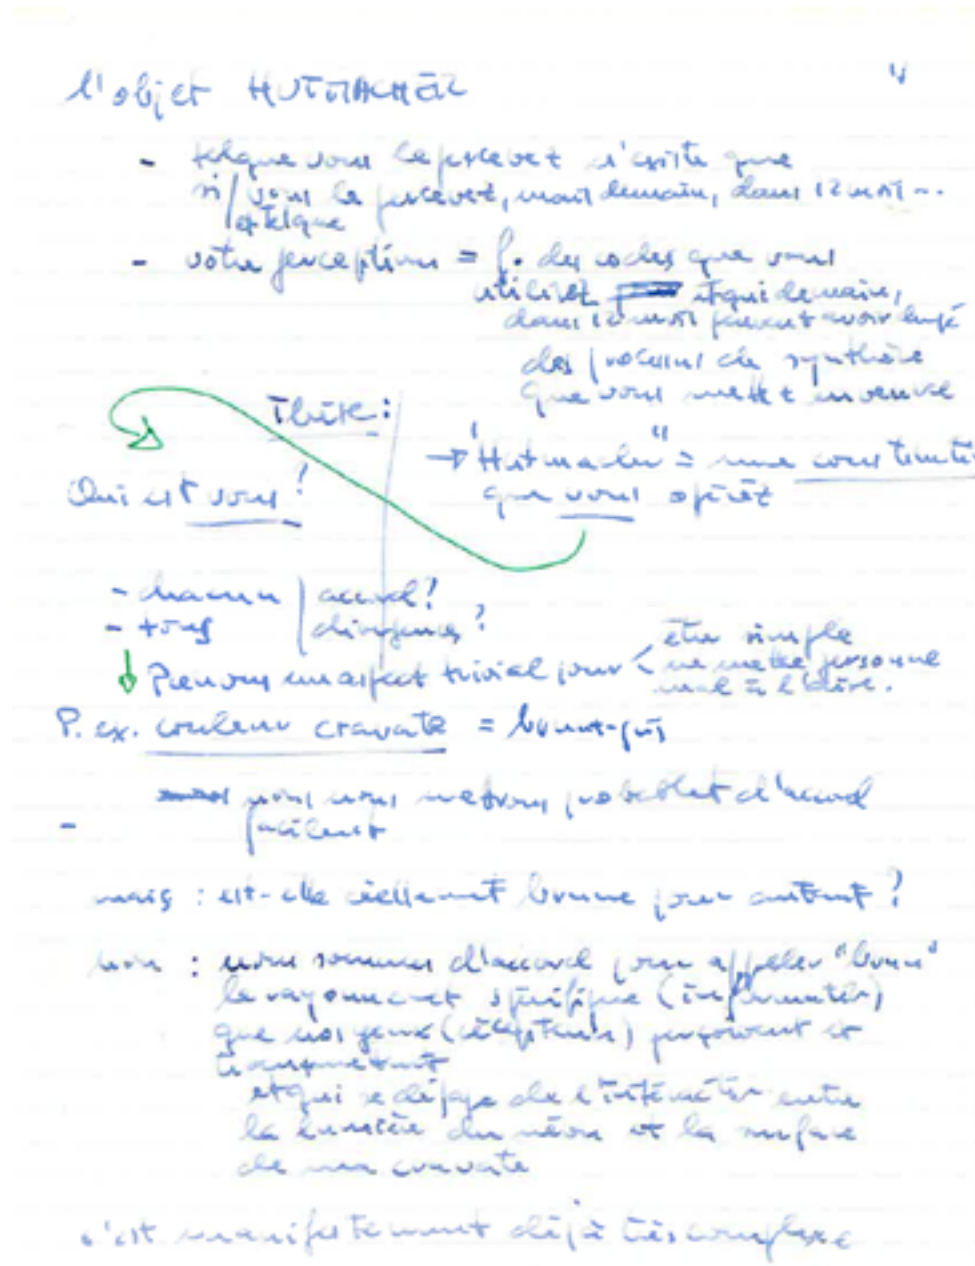 l'objet HUTMACHER
- tel que vous le percevez n'existe que
si / vous le percevez, mais demain, dans 12 mois ...
et tel que
- votre perception = f. des codes que vous
utilisez et qui demain,
dans 12 mois peuvent avoir
des processus de synthèse
que vous mettez en oeuvre
Thèse :
→ "Hutmacher" = une
que vous opérez
Qui est vous ?
- chacun | accord ?
- tous | divergences ?
↓ Prenons un aspect trivial pour < être simple
ne mettre personne
mal à l'aise.
P. ex. couleur cravate = brun-gris
- nous nous mettrons probablet d'accord
facilent
mais : est-elle réellement brune pour autant ?
non : nous sommes d'accord pour appeler "brun"
le rayonnement spécifique (information)
que nos yeux (récepteurs) perçoivent et
transmettent
et qui se dégage de l'interaction entre
la lumière du néon et la surface
de ma cravate
c'est manifestement déjà très complexe